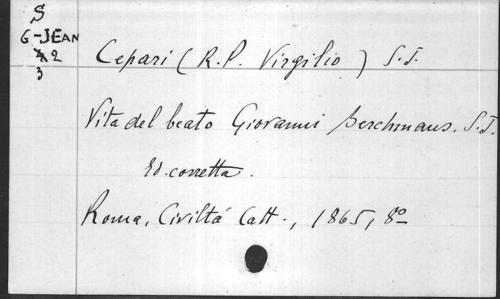 S
G-JEAN
2
3
Cepari (R.P. Virgilio) S.J.
Vita del beato Giovanni Berchmans. S.J.
Ed. corretta.
Roma, Civiltá Catt., 1865, 8º